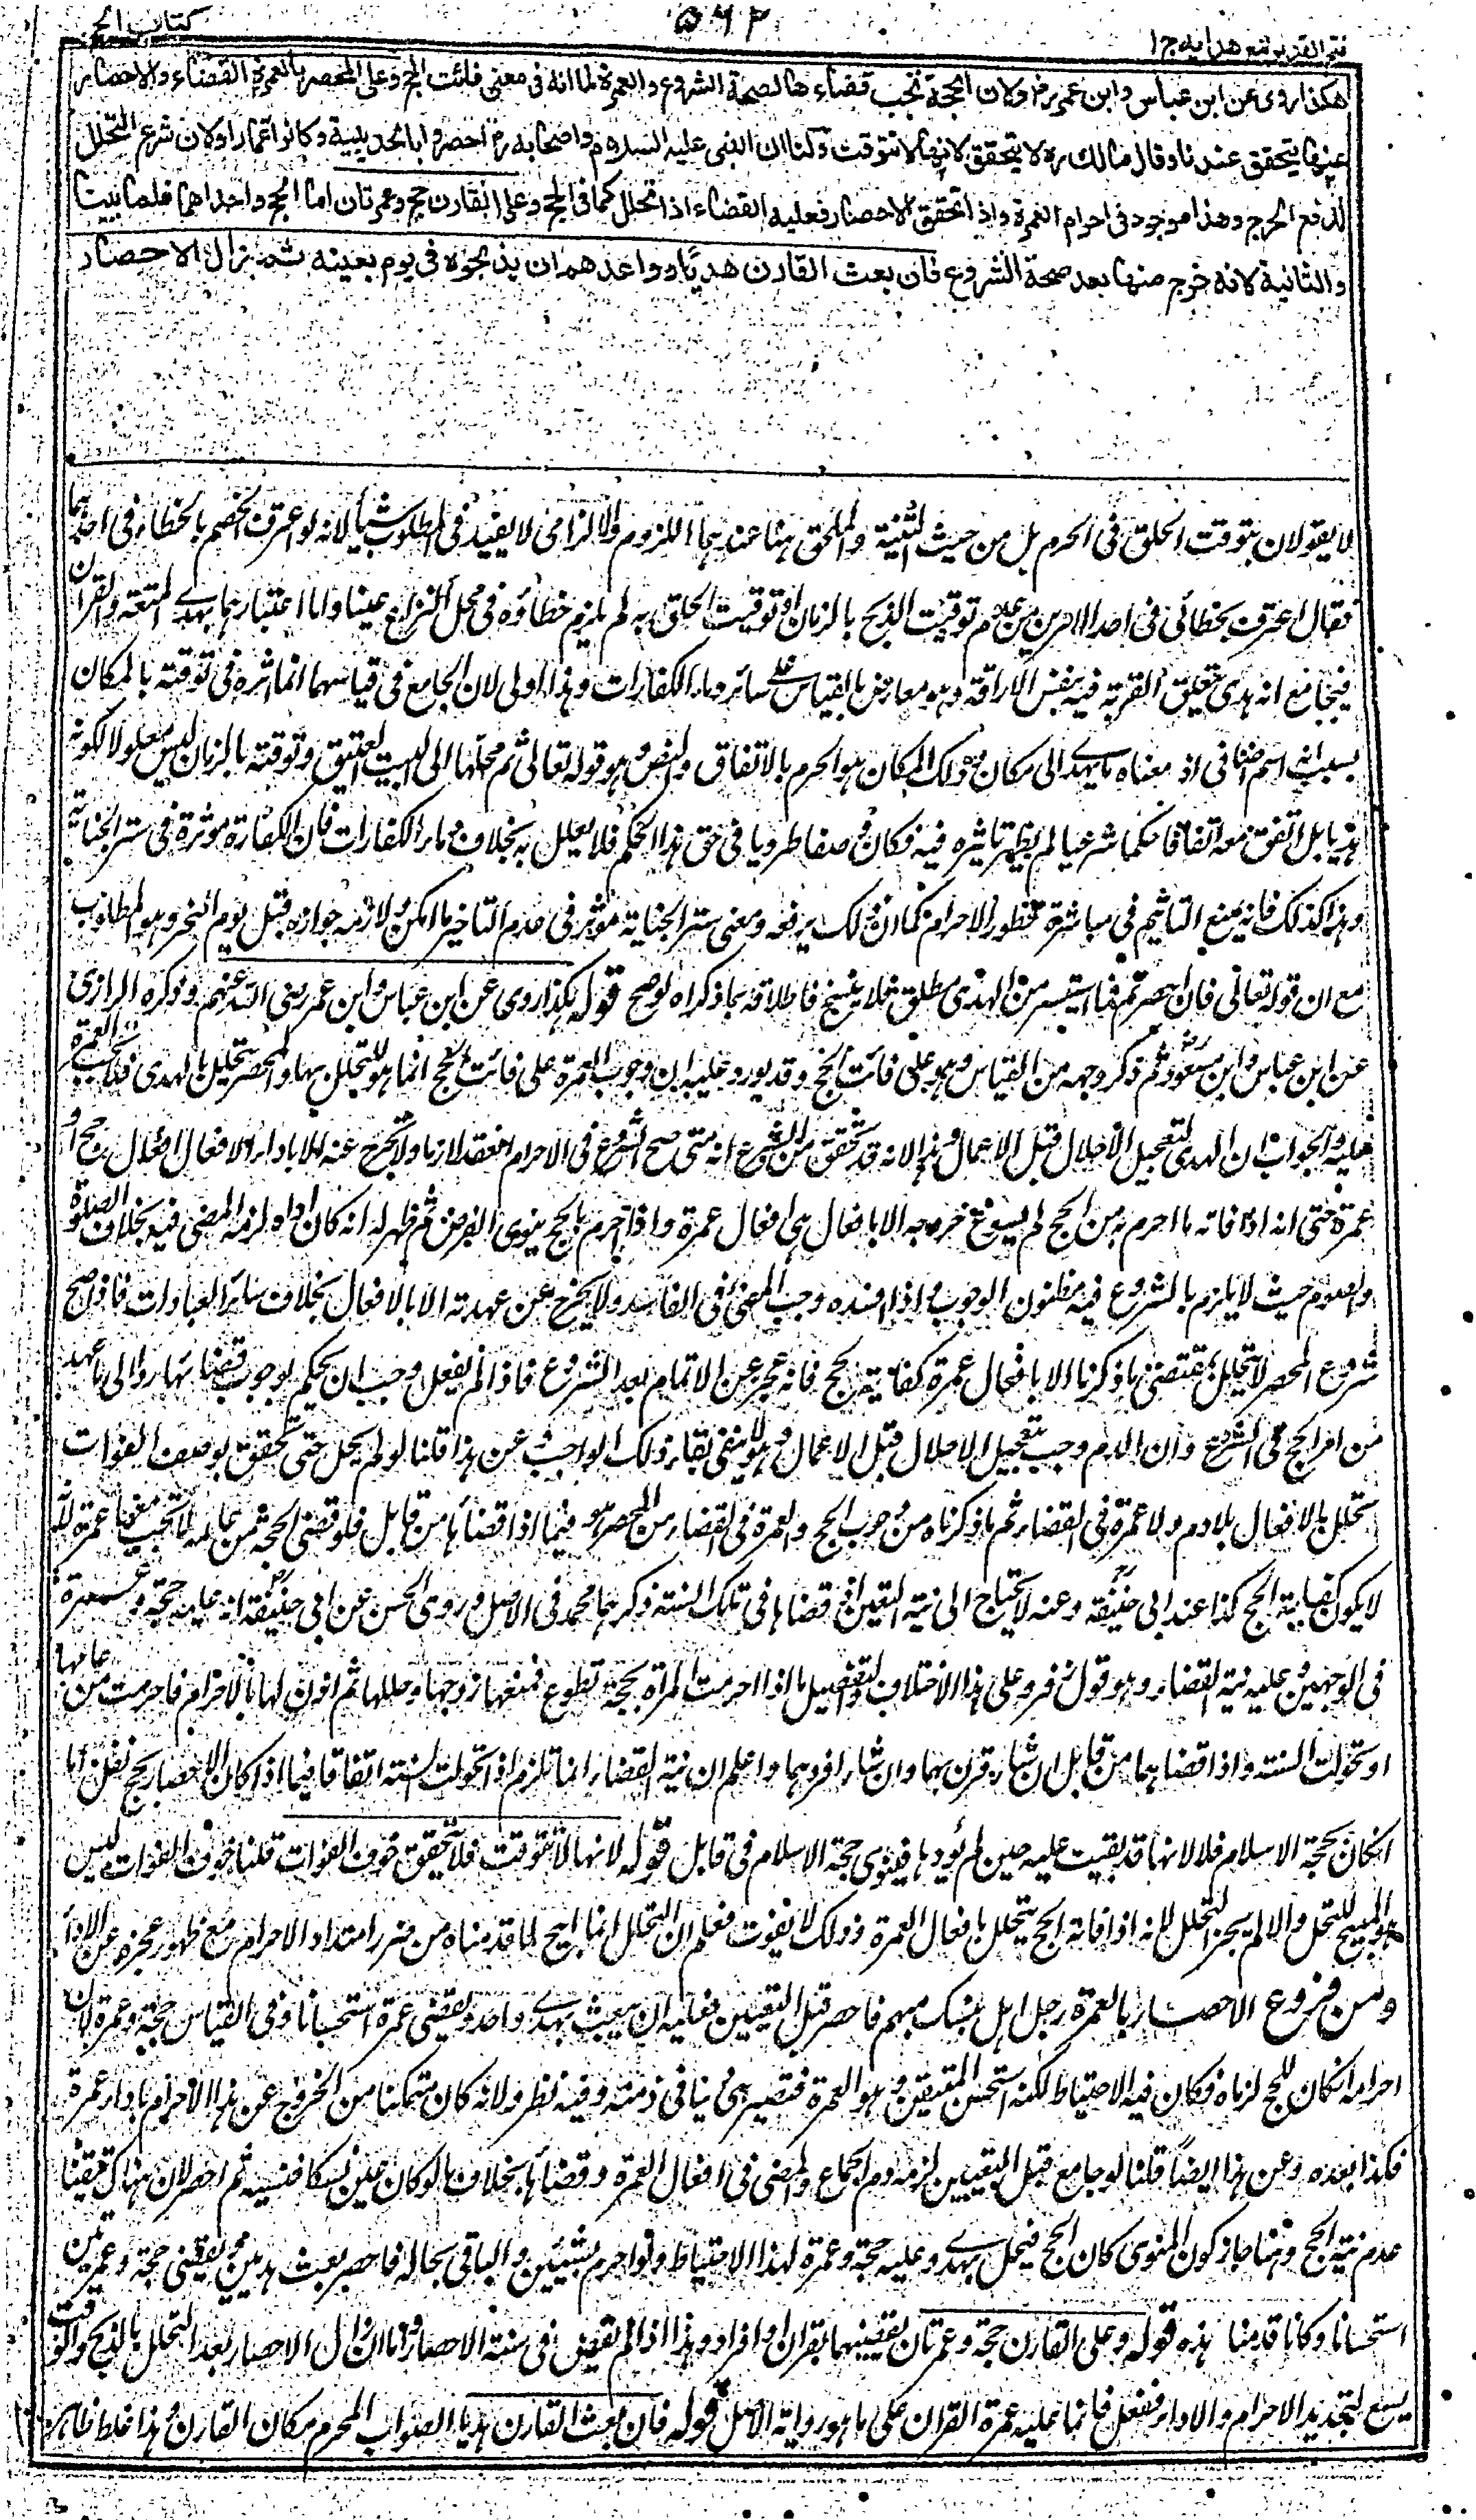 فتح القدير مع هدايه ج ا
۵۶۲
كتاب الحج
هكذا روى عن ابن عباس وابن عمر رض ولان الحجة تجب قضاء ها لصحة الشروع والعمرة لما انه فى معنى فائت الحج وعلى المحصر بالعمرة القضاء والاحصار
عنها يتحقق عندنا وقال مالك ره لا يتحقق لانها لا تتوقت ولنا ان النبى عليه السلام واصحابه رض احصروا بالحديبية وكانوا عمارا ولان شرع التحلل
لدفع الحرج وهذا موجود فى احرام العمرة واذا تحقق الاحصار فعليه القضاء اذا تحلل كما فى الحج وعلى القارن حج وعمرتان اما الحج واحداهما فلما بينا
والثانية لانه خرج منها بعد صحة الشروع فان بعث القارن هديا وواعدهم ان يذبحوه فى يوم بعينه ثم زال الاحصار
لا يقولان بتوقت الحلق فى الحرم بل من حيث السنية والملحق هنا عندهما اللزوم والالزامى لا يفيد فى المطلوب شيأ لانه لو اعترف الخصم بالخطاء فى احدهما
فقال اعترف بخطائى فى احد الامرين من عدم توقيت الذبح بالزمان او توقيت الحلق به لم يلزم خطاؤه فى محل النزاع عينا واما اعتبارهما بهدى المتعة والقران
فبجامع انه هدى تتعلق القربة فيه بنفس الاراقة وهو معارض بالقياس على سائر دماء الكفارات وهذا اولى لان الجامع فى قياسهما انما اثره فى توقته بالمكان
بسبب انه اسم اضافى اذ معناه ما يهدى الى مكان وذلك المكان هو الحرم بالاتفاق والنص وهو قوله تعالى ثم محلها الى البيت العتيق وتوقته بالزمان ليس معلولا لكونه
هديا بل اتفق معه اتفاقا حكما شرعيا لم يظهر تاثيره فيه فكان وصفا طرديا فى حق هذا الحكم فلا يعلل به بخلاف دماء الكفارات فان الكفارة مؤثرة فى ستر الجناية
وهذا كذلك فانه يمنع التاثيم فى مباشرة محظور الاحرام كما ان ذلك يرفعه ومعنى ستر الجناية مؤثر فى عدم التاخير ما امكن ولازمه جوازه قبل يوم النحر وهو المطلوب
مع ان قوله تعالى فان احصرتم فما استيسر من الهدى مطلق فلا ينسخ فاطلاقه بما ذكراه لو صح قوله هكذا روى عن ابن عباس وابن عمر رضى الله عنهم وذكره الرازى
عن ابن عباس وابن مسعود ثم ذكر وجهه من القياس وهو على فائت الحج وقد يورد عليه ان وجوب العمرة على فائت الحج انما هو للتحلل بها والمحصر تحلل بالهدى فلا تجب العمرة
عليه والجواب ان الهدى لتعجيل الاحلال قبل الاعمال وهذا لانه قد تحقق من الشرع انه متى صح الشروع فى الاحرام انعقد لازما ولا يخرج عنه الا باداء الافعال افعال حج او
عمرة حتى انه اذا فاته ما احرم به من الحج لم يسوغ خروجه الا بافعال هى افعال عمرة واذا احرم بالحج ينوى الفرض ثم ظهر له انه كان اداه لزمه المضى فيه بخلاف الصلوة
والصوم حيث لا يلزم بالشروع فيه مظنون الوجوب واذا افسده وجب المضى فى الفاسد ولا يخرج عن عهدته الا بالافعال بخلاف سائر العبادات فاذا صح
شروع المحصر لا يتحلل بمقتضى ما ذكرنا الا بافعال عمرة كفائت حج فانه عجز عن الاتمام بعد الشروع فاذا لم يفعل وجب ان يحكم بوجوب قضائها ردا الى ما عهد
من امر الحج فى الشرع وان الدم وجب بتعجيل الاحلال قبل الاعمال وهو لا ينفى بقاء ذلك الواجب وعن هذا قلنا لو لم يحل حتى تحقق بوصف الفوات
تحلل بالافعال بلا دم ولا عمرة فى القضاء ثم ما ذكرناه من وجوب الحج والعمرة فى القضاء من المحصر هو فيما اذا قضاها من قابل فلو قضى الحجة من عامه لا تجب معها عمرة لانه
لا يكون كفائت الحج كذا عند ابى حنيفة وعنه لا يحتاج الى نية التعيين ان قضاها فى تلك السنة ذكرهما محمد فى الاصل وروى الحسن عن ابى حنيفة ان عليه حجة وعمرة
فى الوجهين وعليه نية القضاء وهو قول زفر وعلى هذا الاختلاف والتفصيل ما اذا احرمت المرأة بحجة تطوع فمنعها زوجها وحللها ثم اذن لها بالاحرام فاحرمت من عامها
او تحولت السنة واذا قضاهما من قابل ان شاء قرن بهما وان شاء افردهما واعلم ان نية القضاء انما تلزم اذا تحولت السنة اتفاقا فيما اذا كان الاحصار بحج نفل اما
ان كان بحجة الاسلام فلا لانها قد بقيت عليه حين لم يؤدها فينوى حجة الاسلام فى قابل قوله لانها لا تتوقت فلا يتحقق خوف الفوات قلنا خوف الفوات ليس
هو المبيح للتحلل والا لم يجز التحلل لانه اذا فاته الحج يتحلل بافعال العمرة وذلك لا يفوت فعلم ان التحلل انما ابيح لما قدمناه من ضرر امتداد الاحرام مع ظهور عجزه عن الاداء
ومن فروع الاحصار بالعمرة رجل اهل بنسك مبهم فاحصر قبل التعيين فعليه ان يبعث بهدى واحد ويقضى عمرة استحسانا وفى القياس حجة وعمرة لان
احرامه ان كان للحج لزماه فكان فيه الاحتياط لكنه استحسن المتيقن وهو العمرة فتصير هى دينا فى ذمته وفيه نظر ولانه كان متمكنا من الخروج عن هذا الاحرام باداء عمرة
فكذا بعده وعن هذا ايضا قلنا لو جامع قبل التعيين لزمه دم الجماع والمضى فى افعال العمرة وقضاؤها بخلاف ما لو كان عين نسكا فنسيه ثم احصر لان هناك تيقنا
عدم نية الحج وهنا جاز كون المنوى كان الحج فيحل بهدى وعليه حجة وعمرة لهذا الاحتياط ولو احرم بشيئين والباقى بحاله فاحصر بعث هديين ويقضى حجة وعمرتين
استحسانا وكانا قدمنا هذه قوله وعلى القارن حجة وعمرتان يقضيهما بقران او افراد وهذا اذا لم يقض فى سنة الاحصار واما ان زال الاحصار بعد التحلل بالذبح والوقت
يسع لتجديد الاحرام والاداء ففعل فانما عليه عمرة القران على ما هو رواية الاصل قوله فان بعث القارن هديا الصواب المحرم مكان القارن وهذا غلط ظاهر